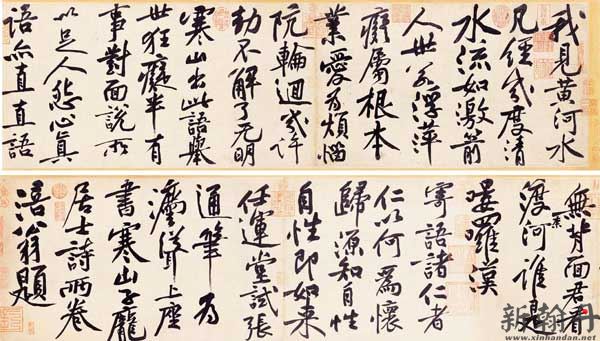 我見黃河水
凡經幾度清
水流如激箭
人世若浮萍
癡屬根本
業愛為煩惱
阬輪迴幾許
劫不解了无明
寒山出此語舉
世狂癡半有
事對面說所
以足人怨心真
語亦直直語
無背面君看
渡奈河誰是
嘍羅漢
寄語諸仁者
仁以何為懷
歸源知自性
自性即如來
任運堂試張
通筆為
法聳上座
書寒山子龐
居士詩兩卷
涪翁題
新翰丹
www.xinhandan.net